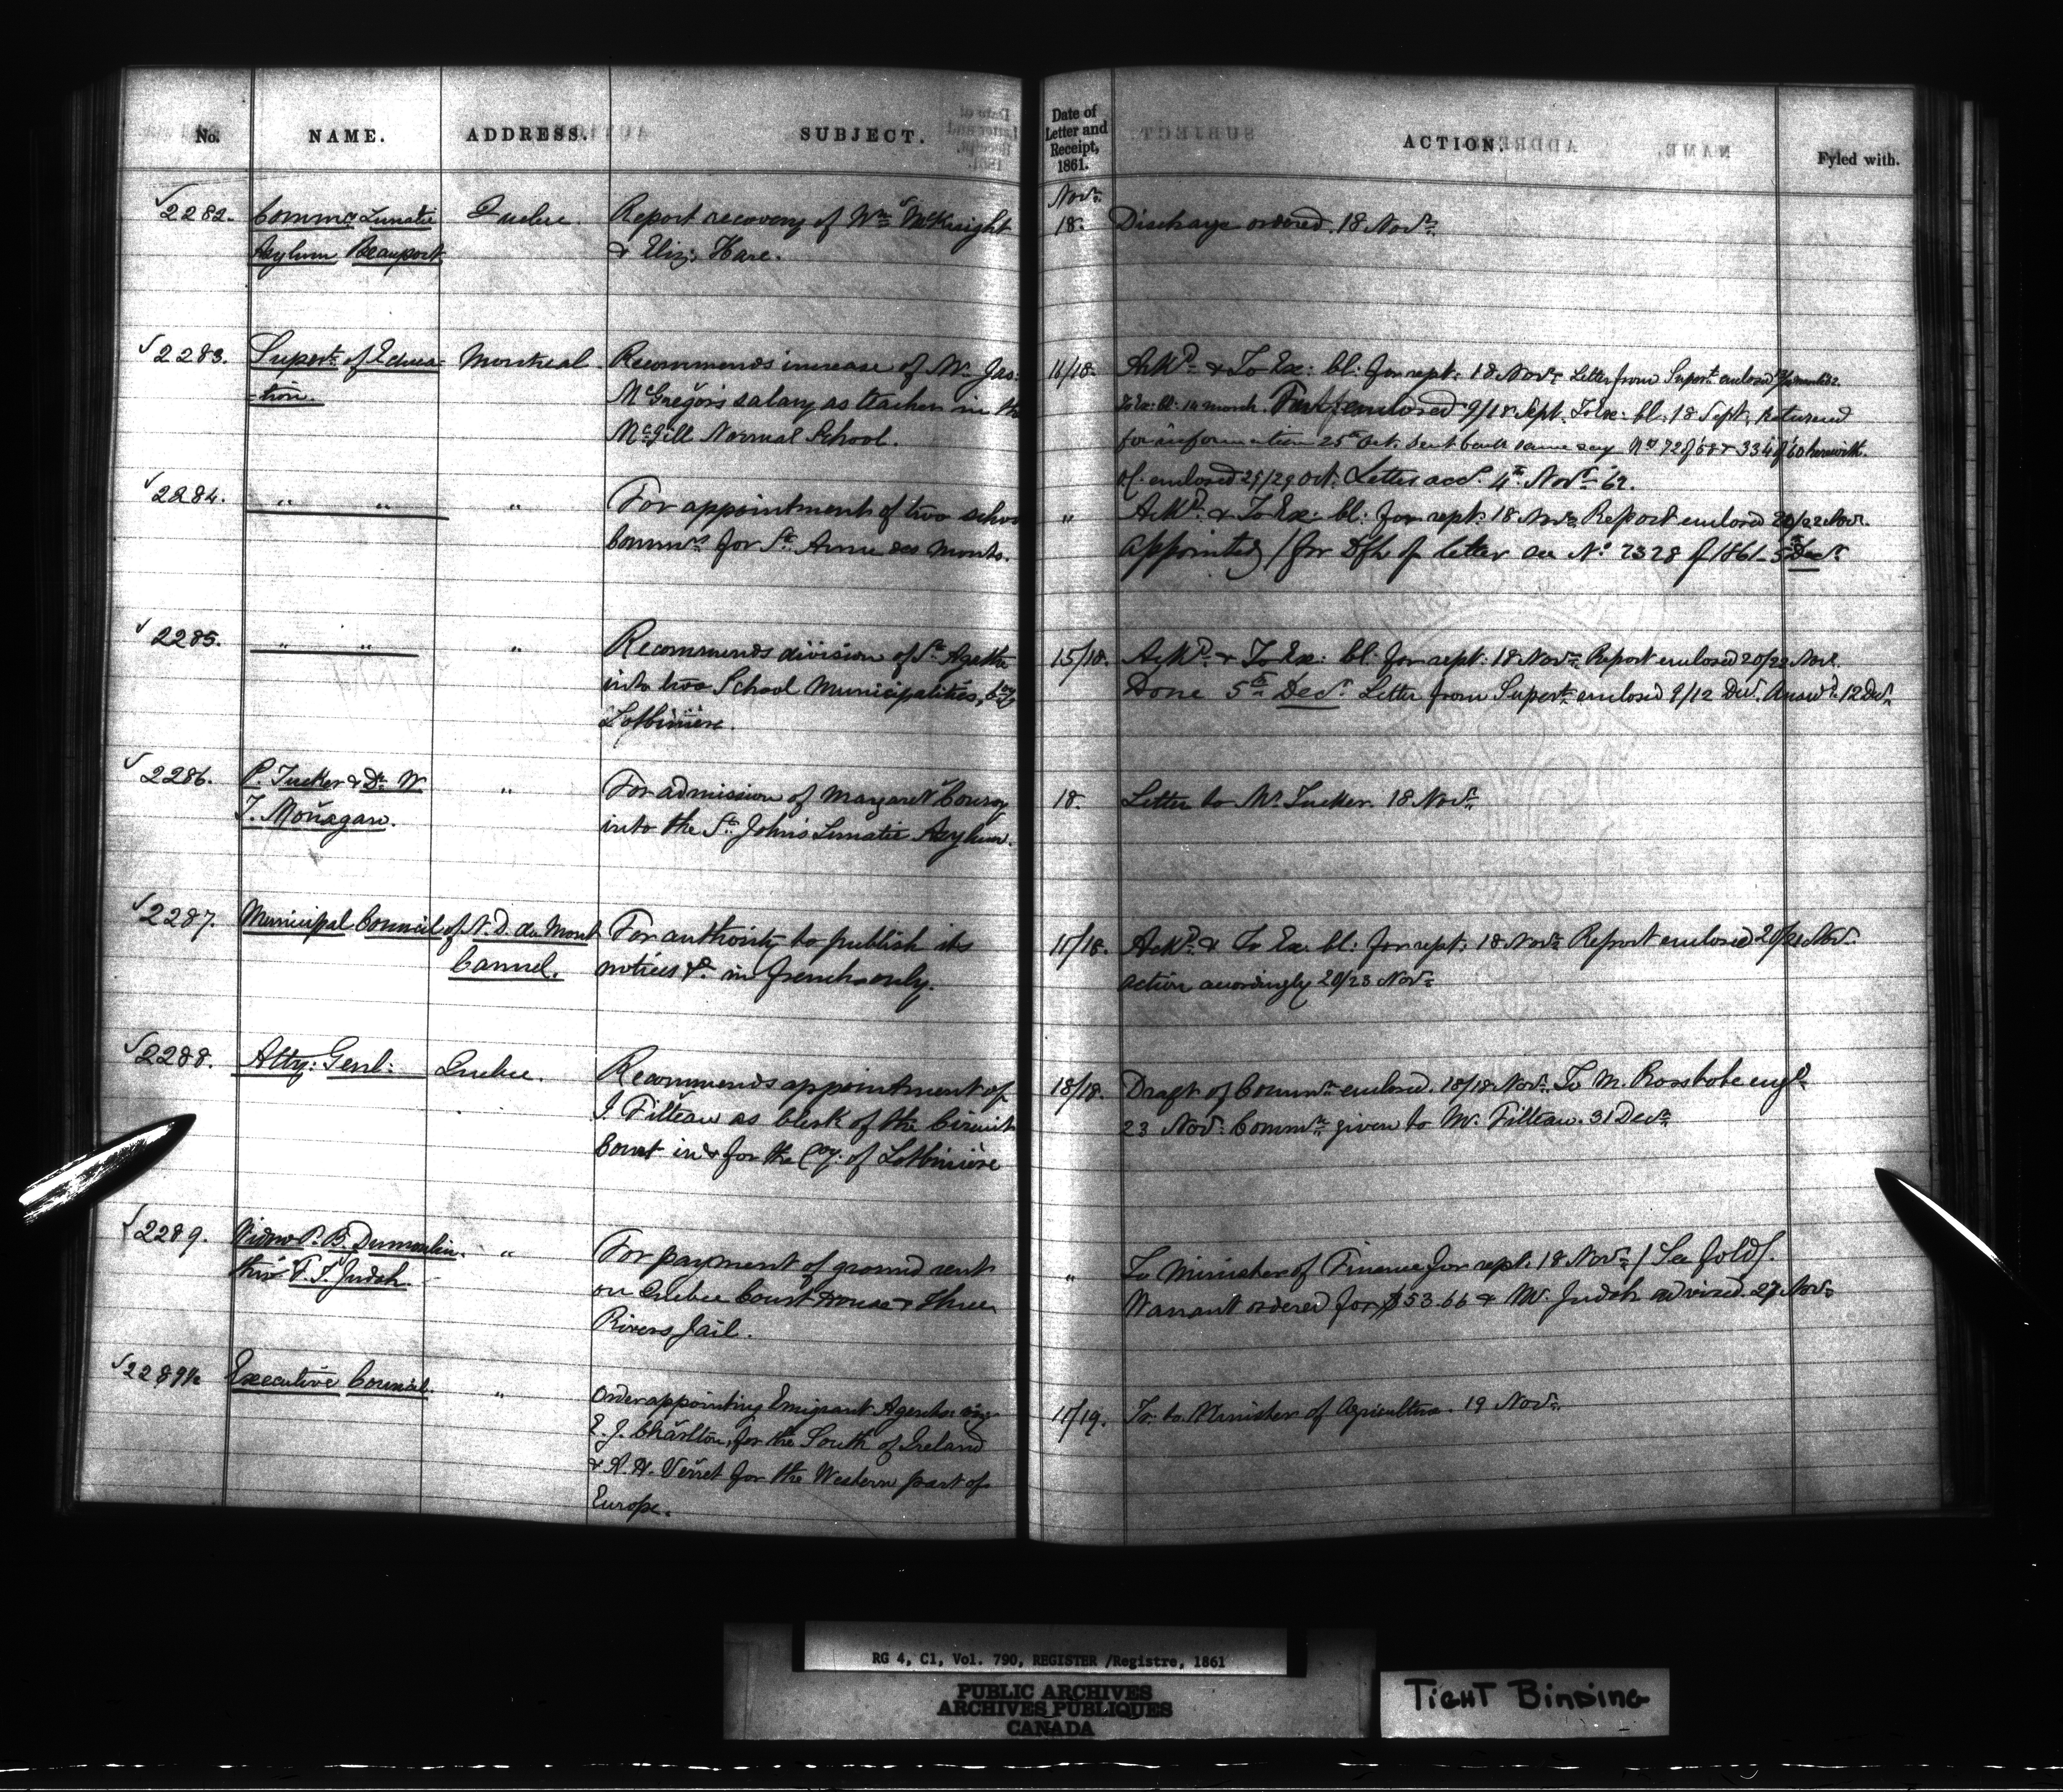 No. NAME. ADDRESS. SUBJECT.
Date of Letter and Receipt, 1861. ACTION. Fyled with.
Nov.
2282. Commrs Lunatic Quebec. Report recovery of Wm McKnight 18. Discharge ordered. 18 Novr.
Asylum Beauport & Eliz: Hare.
2283. Supert. of Educa- Montreal. Recommends increase of Mr. Jas: 16/18. Ackd. & To Ex: Cl: for rept: 18 Novr. Letter from Supert. enclosed
-tion. McGregor's salary as teacher in the To Ex: Cl: 14 March. enclosed 9/18 Sept. To Ex: Cl: 18 Sept. Returned
McGill Normal School. for information 25th Oct. Sent back same day herewith.
enclosed 25/29 Oct. Letter acc. 4th Novr. 62.
2284. " " " For appointment of two school " Ackd. & To Ex: Cl: for rept: 18 Novr. Report enclosed 20/22 Novr.
Commrs. for Ste. Anne des Monts. appointed / for Dft of letter see No. 2328 of 1861 - 5th Decr.
2285. " " " Recommends division of Ste. Agathe 15/18. Ackd. & To Ex: Cl: for rept: 18 Novr. Report enclosed 20/22 Novr.
into two School Municipalities, Coy Done 5th Decr. Letter from Supert. enclosed 9/12 Decr. Answd. 12 Decr.
Lotbinière.
2286. P. Tucker & Dr. W. " For admission of Margaret Conroy 18. Letter to Mr. Tucker. 18 Novr.
T. Monagan. into the St. John's Lunatic Asylum.
2287. Municipal Council of N. D. du Mont For authority to publish its 15/18. Ackd. & To Ex: Cl: for rept: 18 Novr. Report enclosed 20/22 Novr.
Carmel. notices &c. in french only. Action accordingly 20/23 Novr.
2288. Atty: Genl: Quebec. Recommends appointment of 18/18. Draft of Commn. enclosed. 18/18 Novr. To M.
J. Filteau as Clerk of the Circuit 23 Novr. Commn. given to Mr. Filteau. 31 Decr.
Court in & for the Coy. of Lotbinière
2289. Widow P. B. Dumoulin " For payment of ground rent " To Minister of Finance for rept. 18 Novr. / See fold /.
thro' F. T. Judah. on Quebec Court House & Three Warrant ordered for $53.66 & Mr. Judah advised. 27 Novr.
Rivers Jail.
2289½ Executive Council. " Order appointing Emigrant Agents: viz: 11/19. To Minister of Agriculture. 19 Novr.
E. J. Charlton, for the South of Ireland
& A. H. Verret for the Western part of
Europe.
RG 4, C1, Vol. 790, REGISTER /Registre, 1861
PUBLIC ARCHIVES
ARCHIVES PUBLIQUES
CANADA
TIGHT BINDING